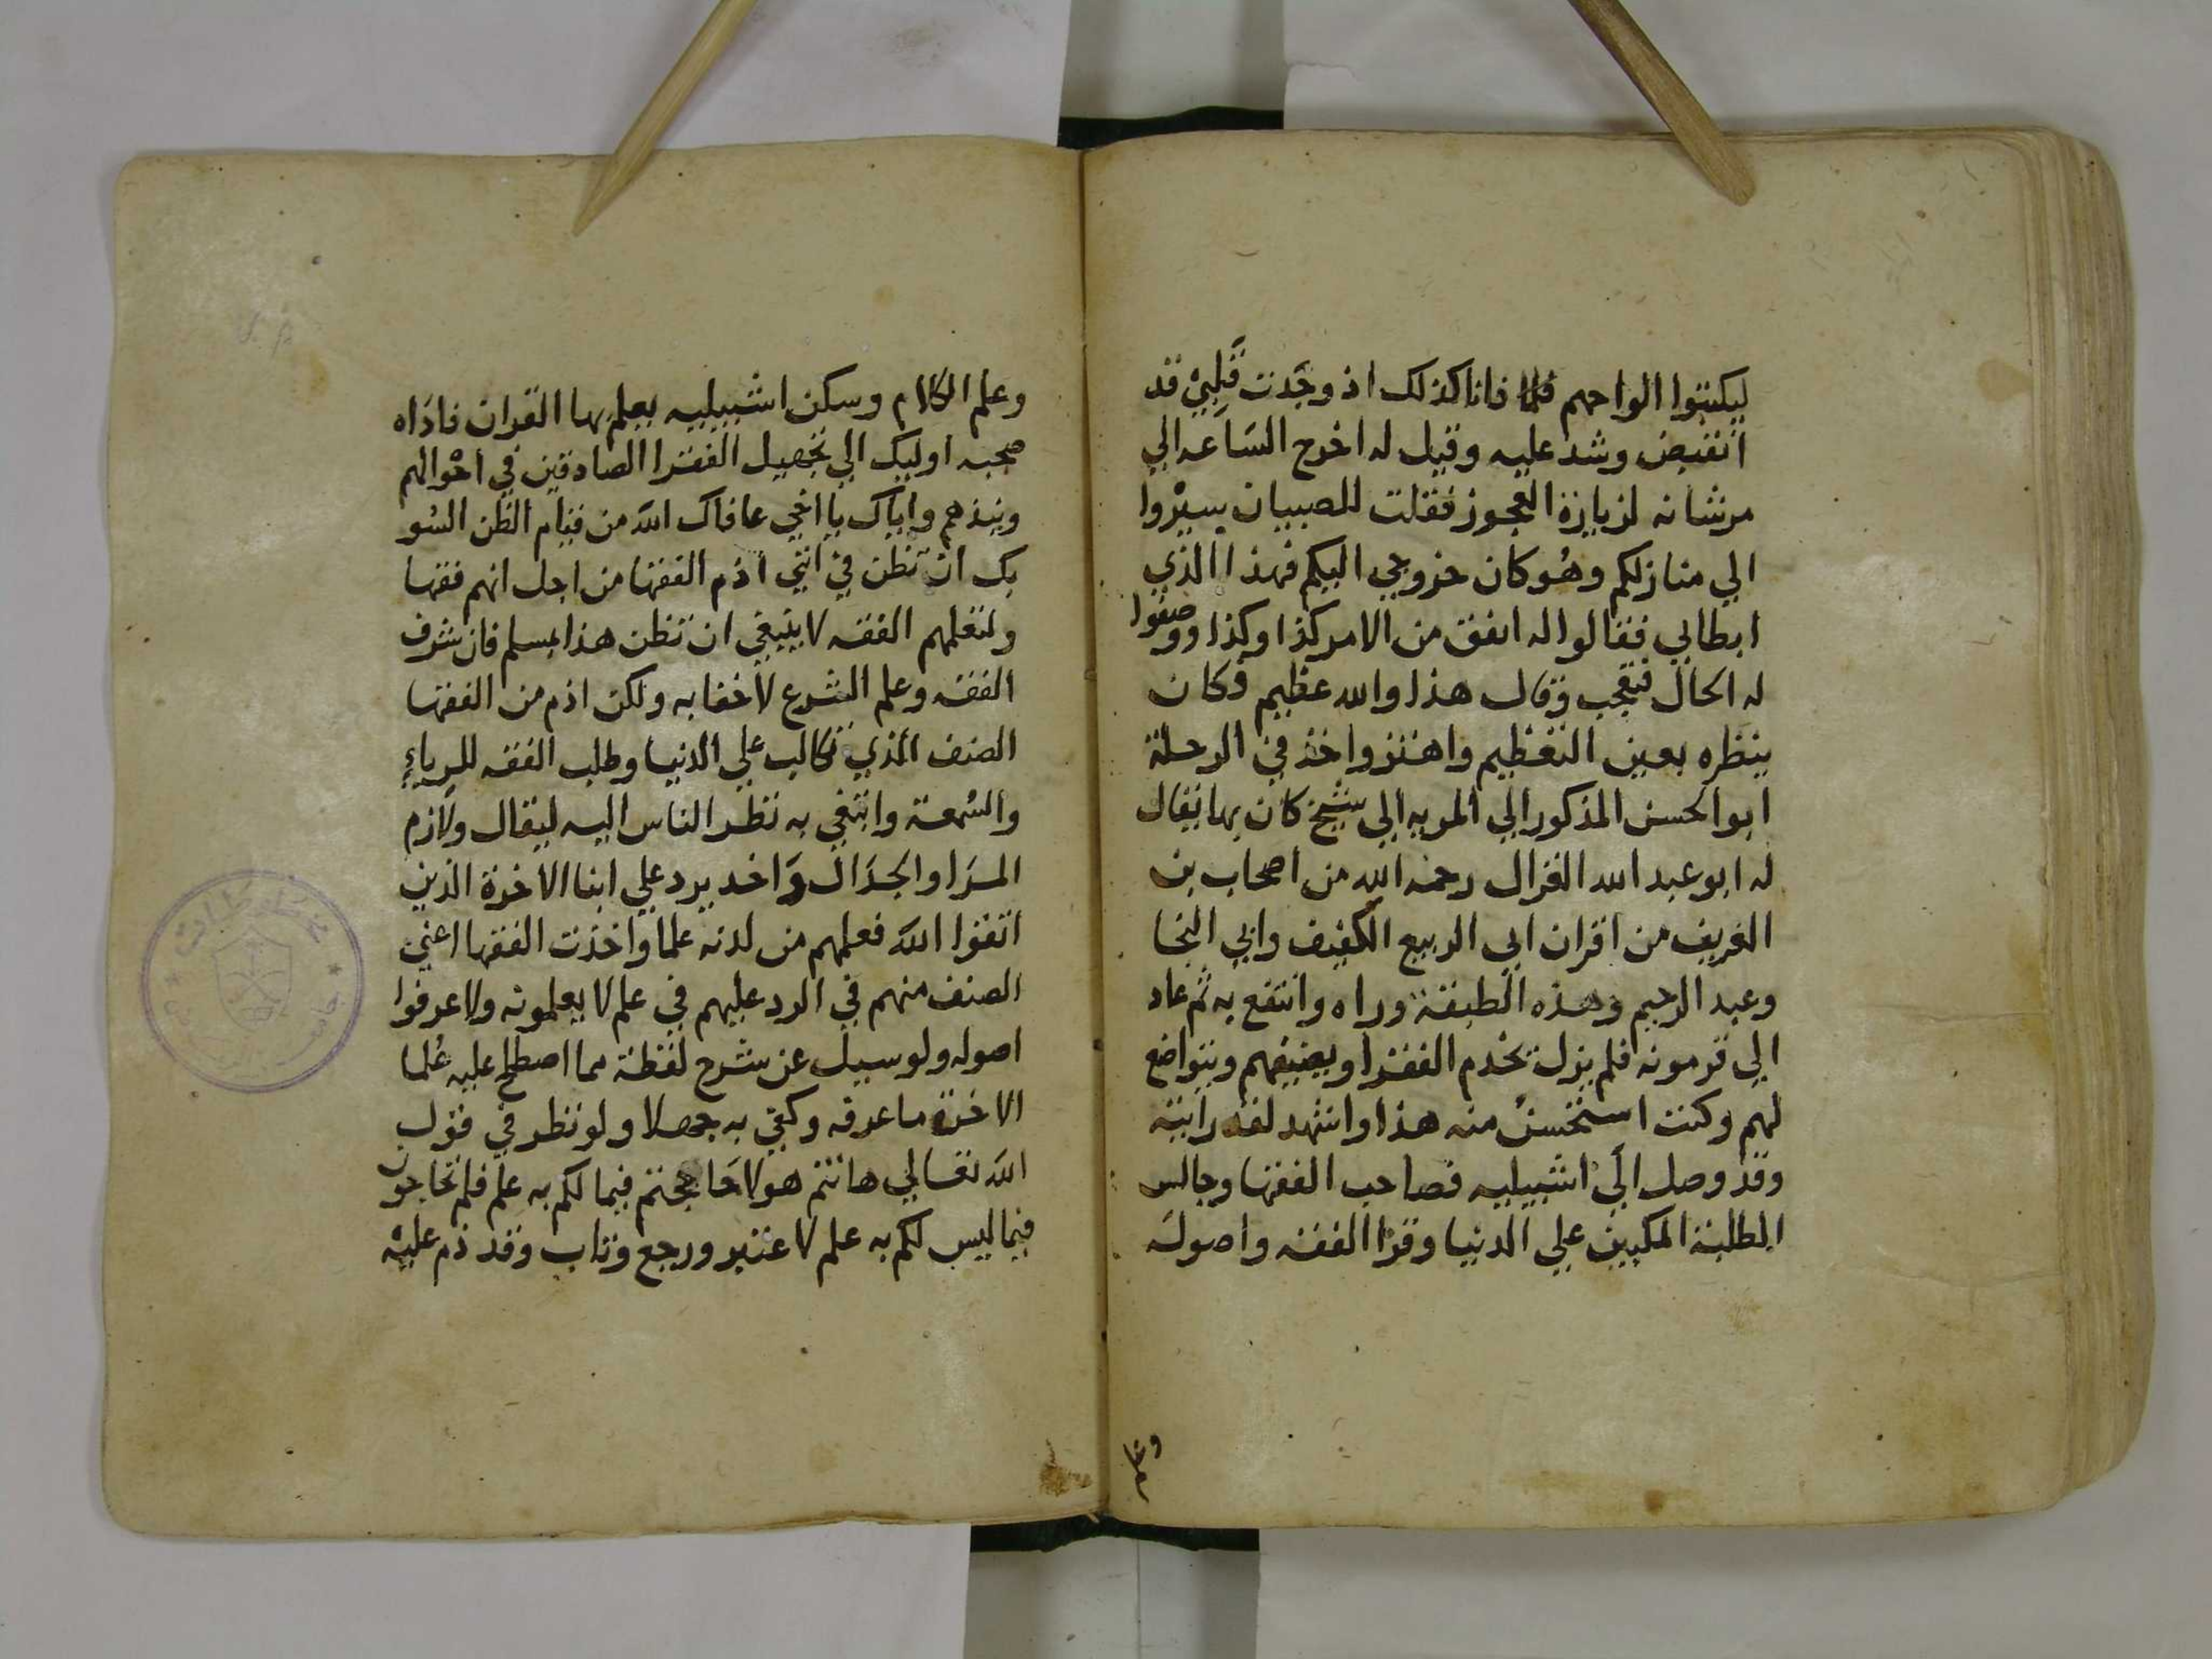 ليكتبوا الواحهم فانا كذلك اذ وجدت قلبي قد
انقبض وشد عليه وقيل له اخرج الساعه الي
مرشانه لزيارة العجوز فقلت للصبيان سيروا
الي منازلكم وهو كان خروجي اليكم فهذا الذي
ابطاني فقالوا له اتفق من الامر كذا وكذا ووصفوا
له الحال فتعجب وقال هذا والله عظيم فكان
ينظره بعين التعظيم واهتز واخذ في الرحلة
ابو الحسن المذكور الي المريه الي شيخ كان بها يقال
له ابو عبد الله الغزال رحمه الله من اصحاب بن
الغريف من اقران ابي الربيع الكفيف وابي النجا
وعبد الرحيم وهذه الطبقة وراه وانتفع به ثم عاد
الي قرمونه فلم يزل يخدم الفقرا ويضيفهم ويتواضع
لهم وكنت استحسن منه هذا واشهد لقد رايته
وقد وصل الي اشبيليه فصاحب الفقها وجالس
الطلبة المكبين علي الدنيا وقرا الفقه واصوله
وعلم الكلام وسكن اشبيليه يعلم بها القران فاداه
صحبه اوليك الي تجهيل الفقرا الصادقين في احوالهم
ونبذهم واياك يا اخي عافاك الله من قيام الظن السو
بك ان تظن في انني اذم الفقها من اجل انهم فقها
ولتعلمهم الفقه لا ينبغي ان تظن هذا بمسلم فان شرف
الفقه وعلم الشرع لا خفا به ولكن اذم من الفقها
الصنف الذي تكالب علي الدنيا وطلب الفقه للرياء
والسمعة وابتغي به نظر الناس اليه ليقال ولازم
المرا والجدال واخد يرد علي ابنا الاخرة الذين
اتقوا الله فعلمهم من لدنه علما واخذت الفقها اعني
الصنف منهم في الرد عليهم في علم لا يعلمونه ولا عرفوا
اصوله ولو سيل عن شرح لفظة مما اصطلح عليه علما
الاخرة ما عرفه وكفي به جهلا ولو نظر في قول
الله تعالي هانتم هولا حاججتم فيما لكم به علم فلم تحاجون
فيما ليس لكم به علم لاعتبر ورجع وتاب وقد ذم عليه